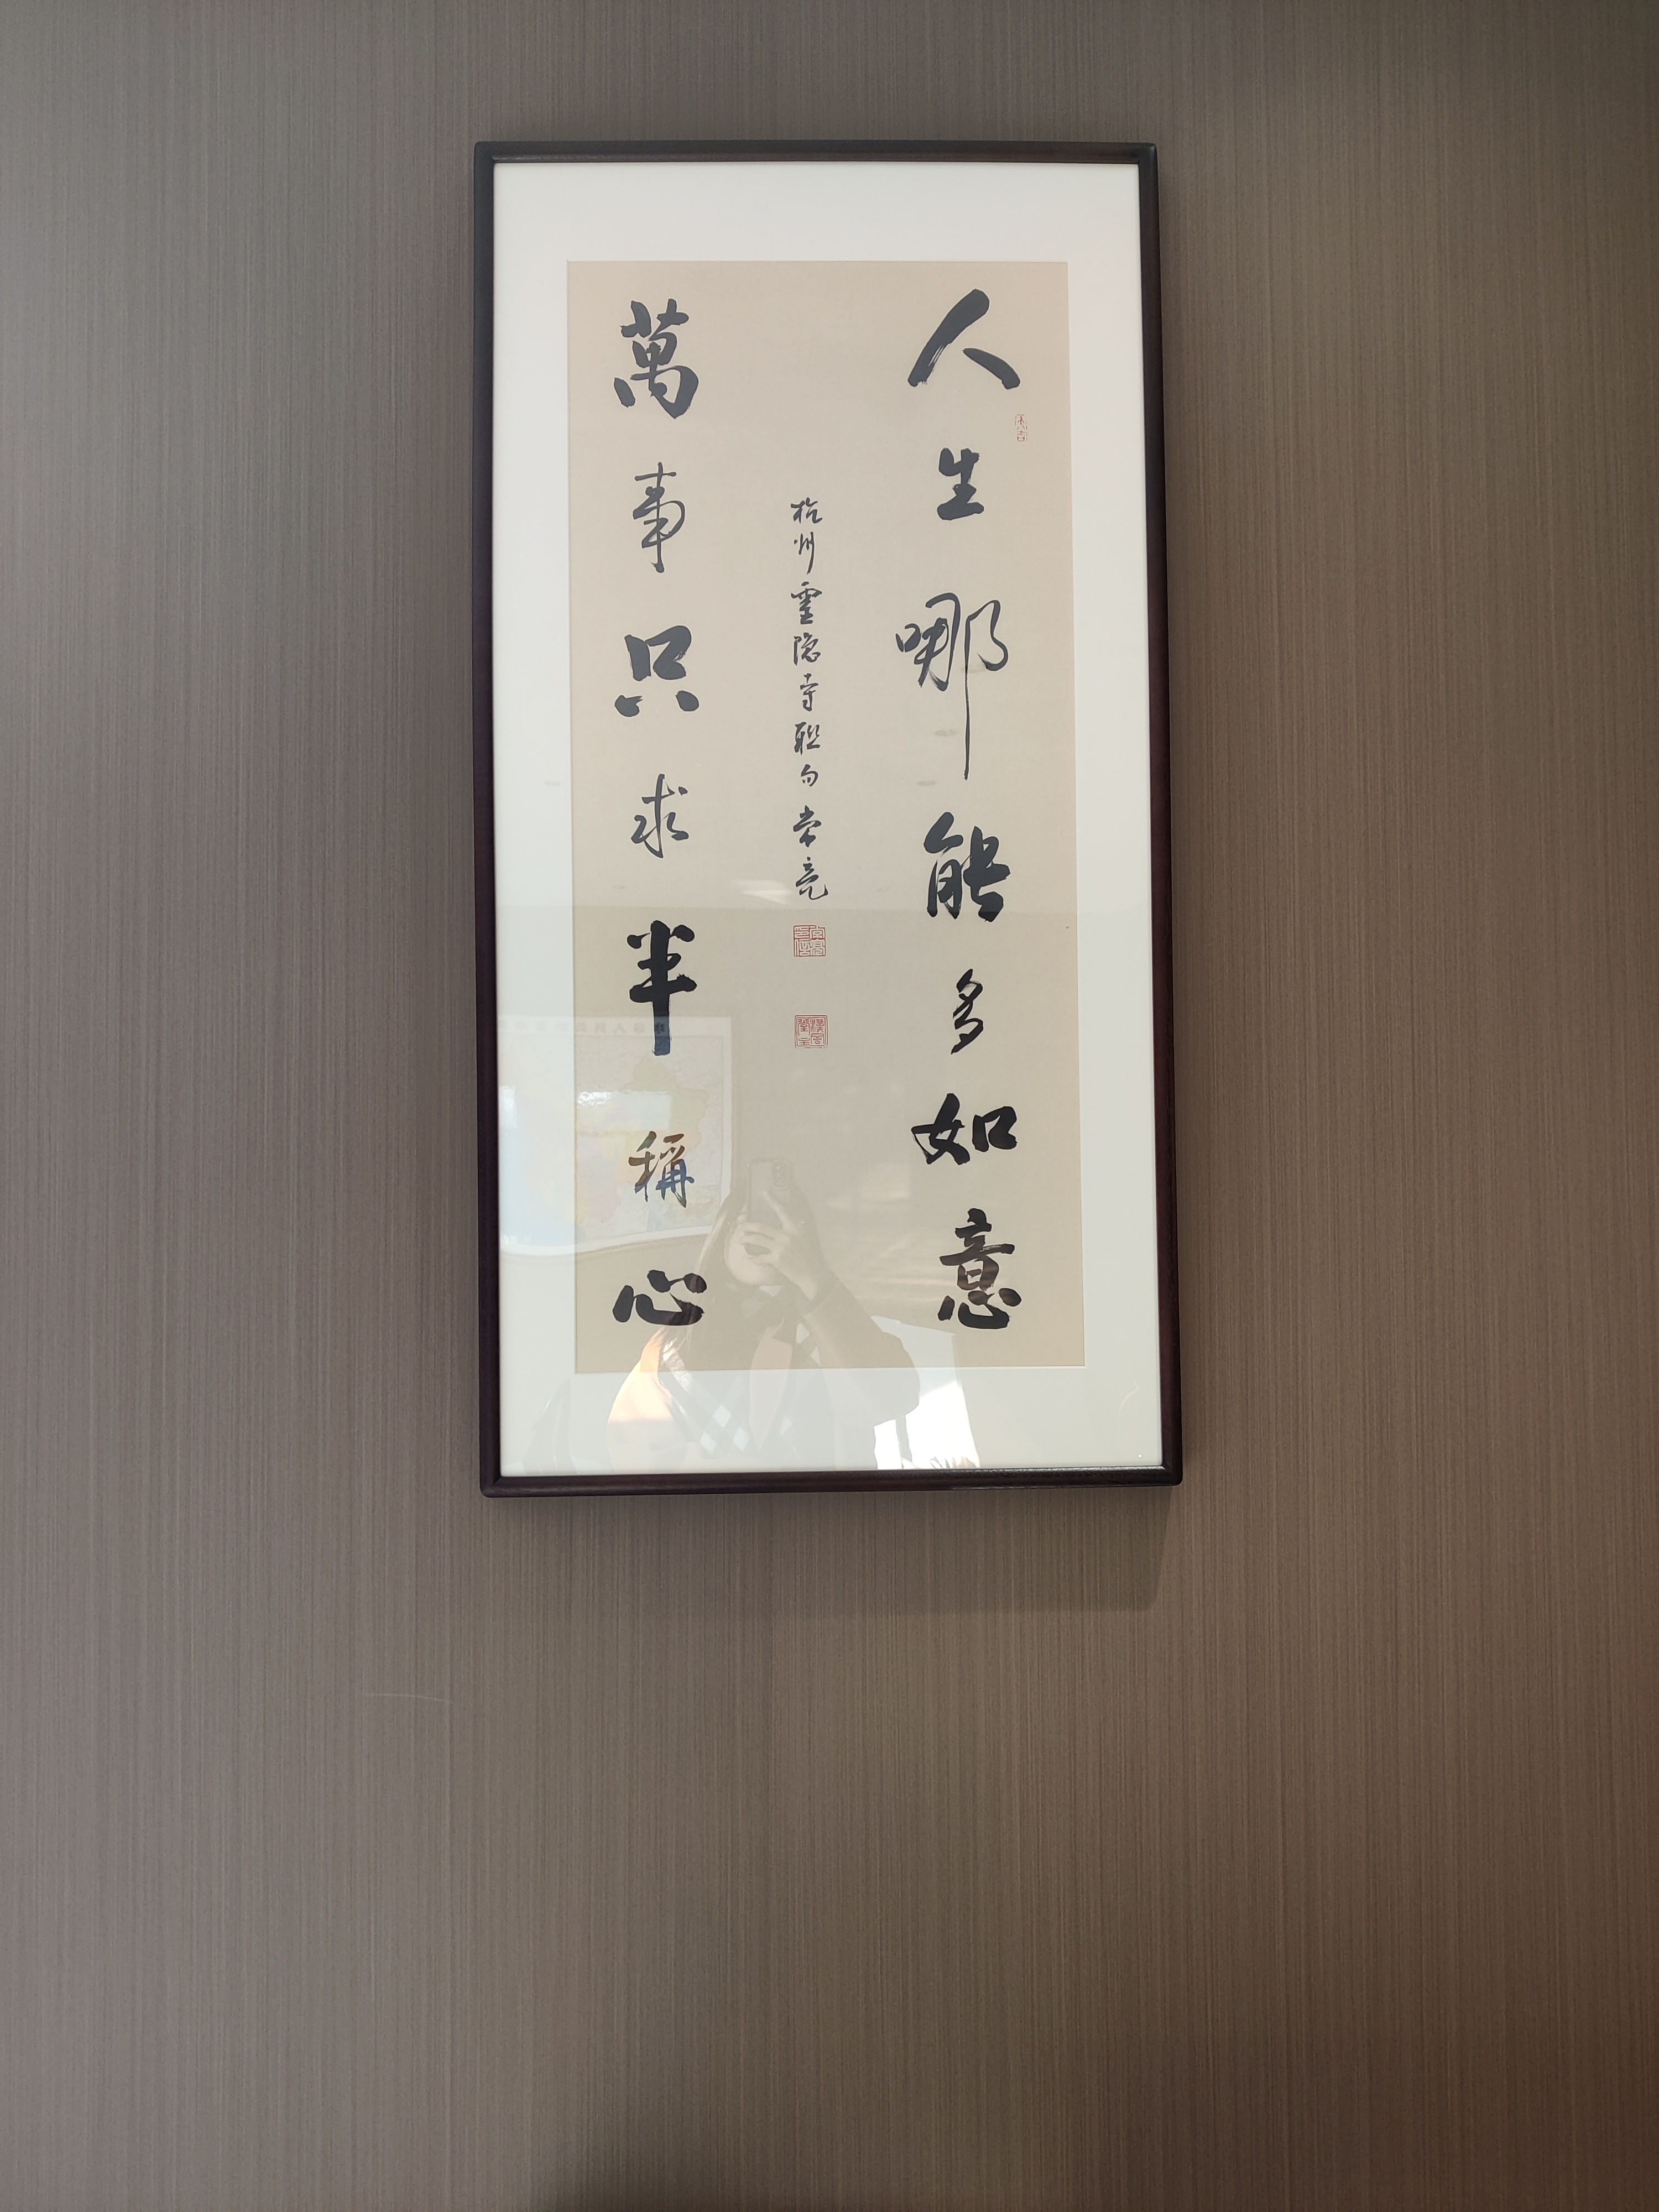 人生哪能多如意
杭州靈隐寺联句 常亮
萬事只求半稱心